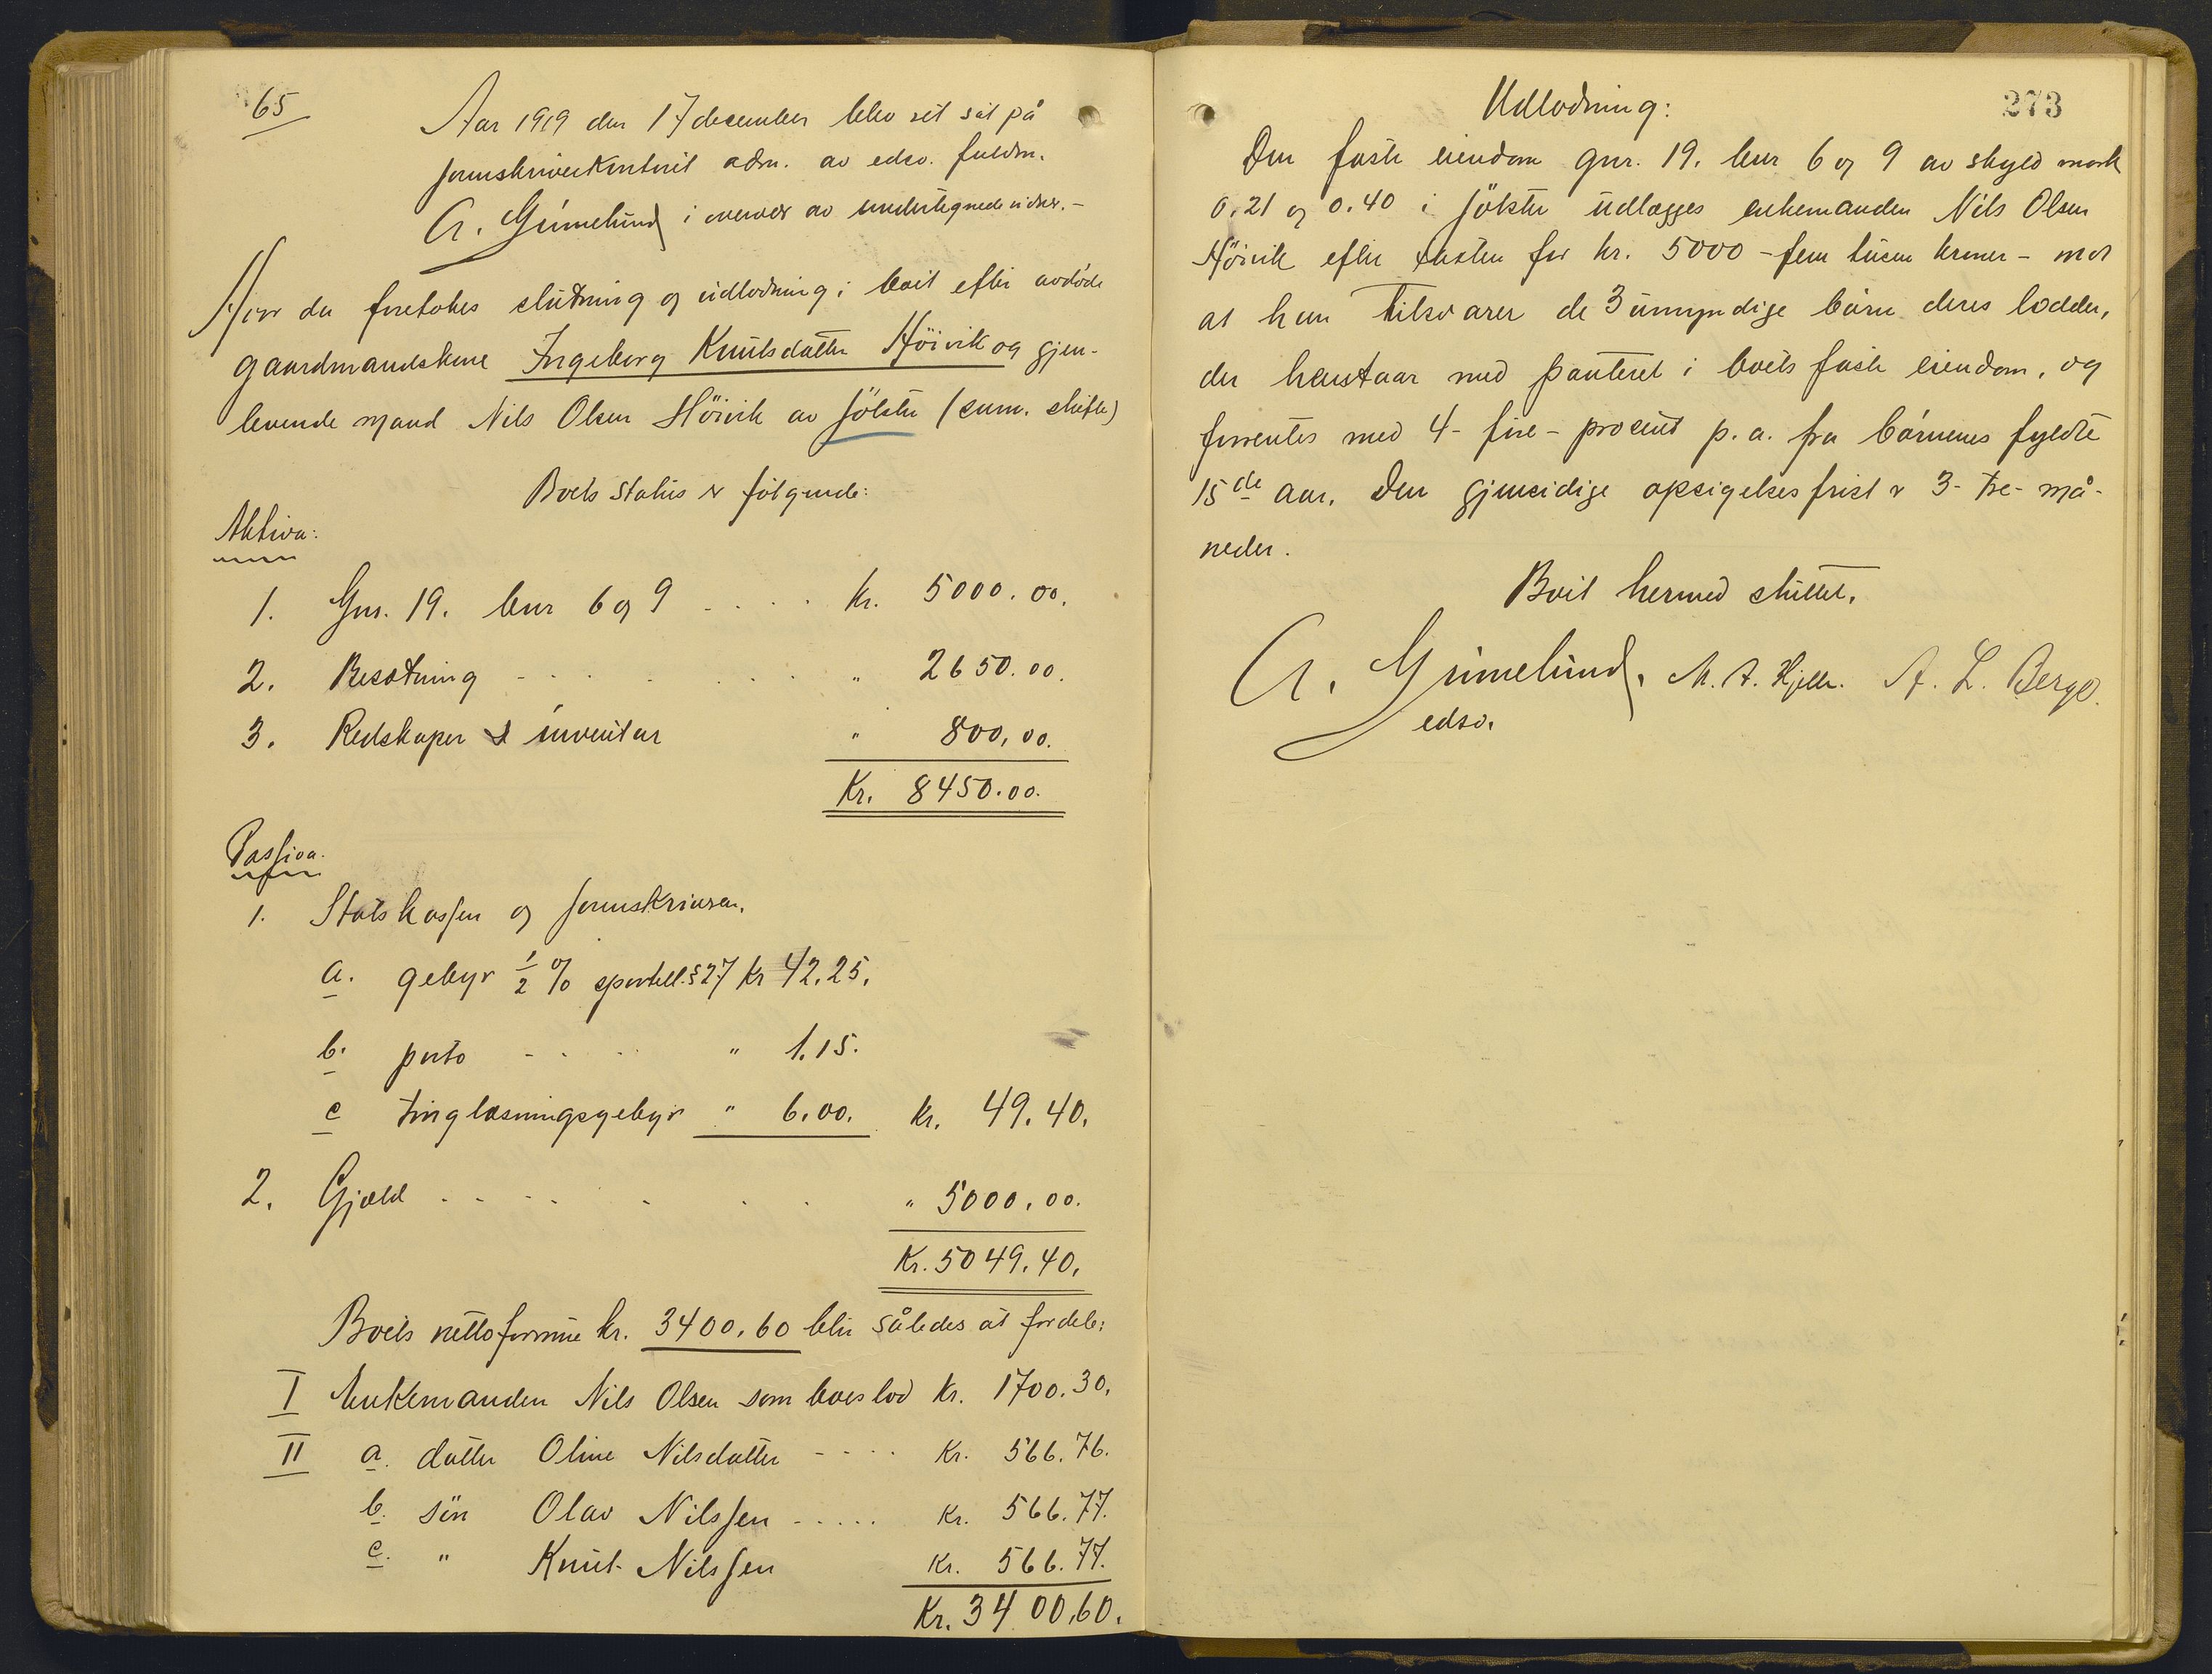 65
Aar 1919 den 17 december blev ret sat på
sorenskriverkontoret adm. av edsv. fuldm.
A. Grimelund i overvær av undertegnede vidner. -
Hvor da foretokes slutning og utlodning i boet efter avdøde
gaardmandskone Ingeborg Knutsdatter Höivik og gjen-
levende mand Nils Olsen Höivik av Jölster (sum. skifte)
Boets status er følgende:
Aktiva:
1. Gnr. 19. bnr 6 og 9 . . . . kr. 5000.00.
2. Besætning - . . . . . . . " 2650.00.
3. Redskaper & inventar " 800,00.
Kr. 8450.00.
Passiva.
1. Statskassen og sorenskriveren.
a. gebyr 1/2 % sportell. § 27 kr 42.25.
b. porto - . . . " 1.15.
c tinglæsningsgebyr " 6.00. kr. 49.40.
2. Gjæld . . . . . . . " 5000.00.
Kr. 5049.40.
Boets nettoformue kr. 3400.60 blir således at fordele:
I Enkemanden Nils Olsen som boeslod kr. 1700.30.
II a. datter Oline Nilsdatter - . . . kr. 566.76.
b. sön Olav Nilssen - . . . . kr. 566.77.
c. " Knut Nilssen kr. 566.77.
Kr. 3400.60.
273
Udlodning:
Den faste eiendom gnr. 19. bnr 6 og 9 av skyld mark
0.21 og 0.40 i Jölster utlægges enkemanden Nils Olsen
Höivik efter taksten for kr. 5000 - fem tusen kroner - mot
at han tilsvarer de 3 umyndige børn deres lodder,
der henstaar med panteret i boets faste eiendom, og
forrentes med 4 - fire - procent p. a. fra børnenes fyldte
15de aar. Den gjensidige opsigelsesfrist er 3 - tre - må-
neder.
Boet hermed sluttet.
A. Grimelund. M. A. Hjelle. A. L. Berge.
edsv.